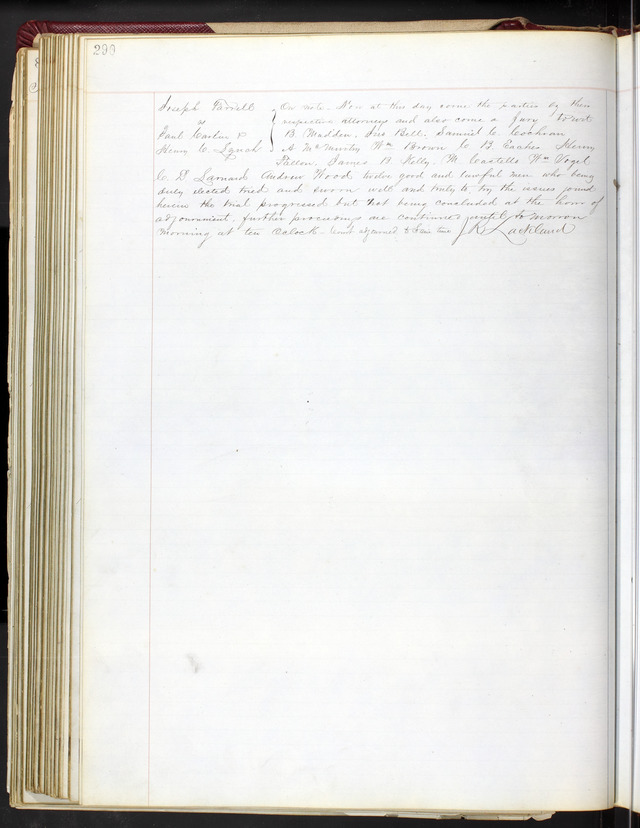 290
Joseph Farrell } On note. Now at this day come the parties by their
vs respective attorneys and also come a Jury to wit
Paul & B. Madden, Jos Bell, Samuel C. Cochran
Henry C. Lynch A. Mc Wm Brown C. B. Eaches Henry
James B. Kelly, M. Castello Wm Vogel
C. D. Larnard Andrew Wood twelve good and lawful men who being
duly elected tried and sworn well and truly to try the issues joined
herein the trial progressed but that being concluded at the hour of
adjournment, further proceedings are continued until to morrow
morning at ten Oclock. Court adjourned to same time J R Lackland